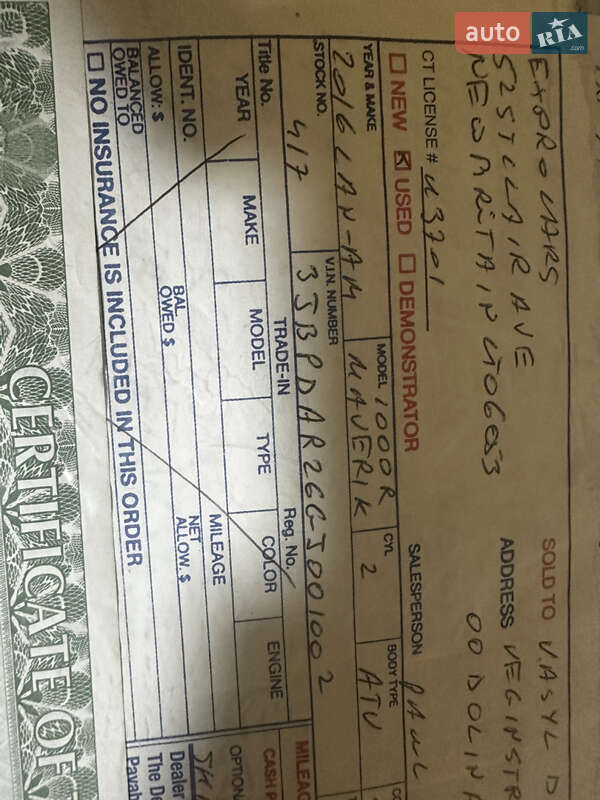 auto RIA .com
EXPRO CARS
52 ST CLAIR AVE
NEW BRITAIN CT 06053
SOLD TO VASYL D
ADDRESS
CT LICENSE # U3701
SALESPERSON PAUL
NEW USED DEMONSTRATOR
YEAR & MAKE 2016 CAN-AM
MODEL 1000R MAVERIK
CYL 2
BODY TYPE ATV
STOCK NO. 417
V.I.N. NUMBER 3JBPDAR26GJ001002
MILEAG
TRADE-IN
Title No.
Reg. No.
CASH P
YEAR MAKE MODEL TYPE COLOR ENGINE
OPTION
IDENT. NO.
MILEAGE
ALLOW: $
BAL OWED $
NET ALLOW. $
Dealer
BALANCED OWED TO
The De
NO INSURANCE IS INCLUDED IN THIS ORDER
Payab
CERTIFICATE OF